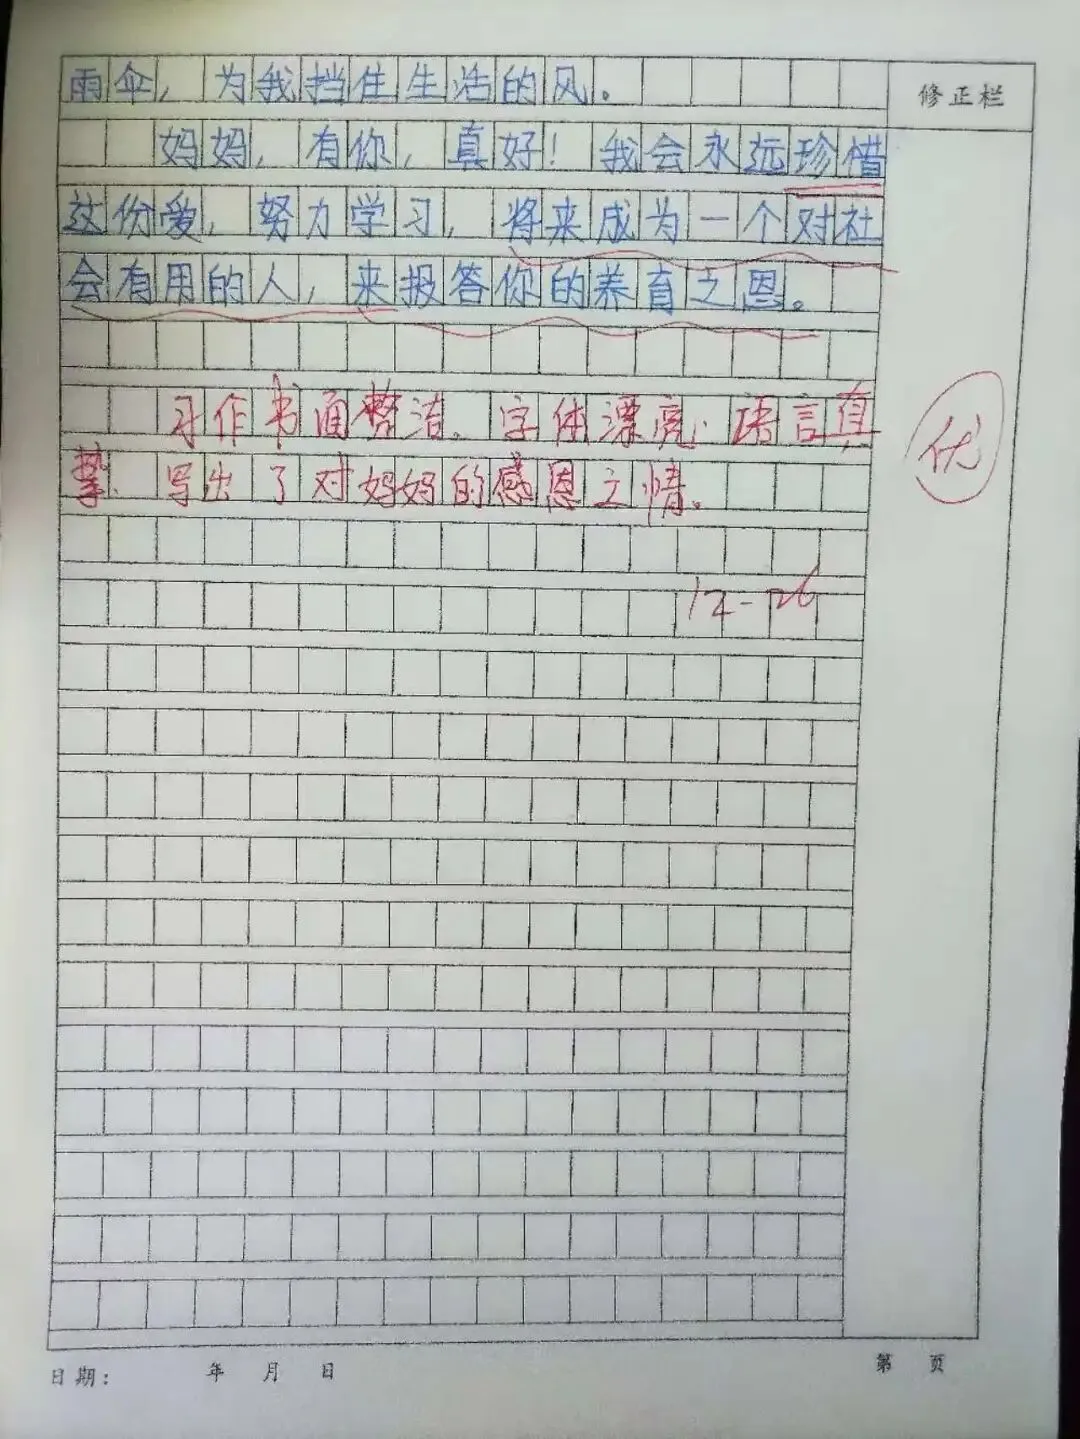 雨伞，为我挡住生活的风。
修正栏
妈妈，有你，真好！我会永远珍惜
这份爱，努力学习，将来成为一个对社
会有用的人，来报答你的养育之恩。
习作书面整洁、字体漂亮.语言真
挚.写出了对妈妈的感恩之情。
优
12-26
日期： 年 月 日
第 页